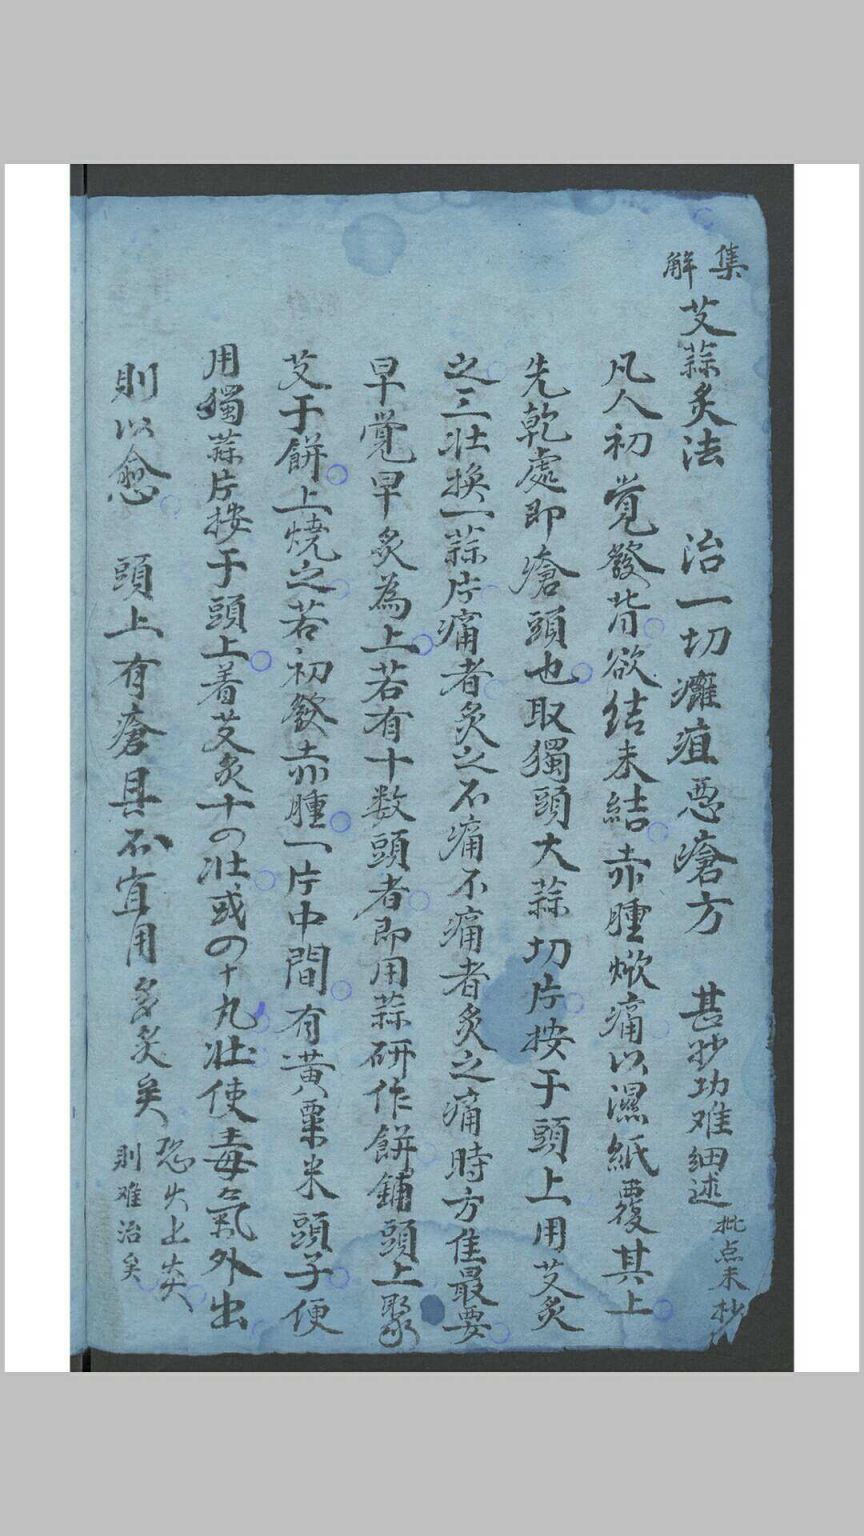 集解
艾蒜炙法　治一切癰疽惡瘡方　甚妙功难細述
批点未抄
凡人初覚發背欲结未結赤腫焮痛以濕紙覆其上
先乾處即瘡頭也取獨頭大蒜切片按于頭上用艾炙
之三壮換一蒜片痛者炙之不痛不痛者炙之痛時方佳最要
早覺早炙為上若有十数頭者即用蒜研作餅鋪頭上聚
艾于餅上燒之若初發赤腫一片中間有黄粟米頭子便
用獨蒜片按于頭上着艾炙十四壮或四十九壮使毒氣外出
則以愈　頭上有瘡且不宜用多炙矣
恐火上炎
則难治矣